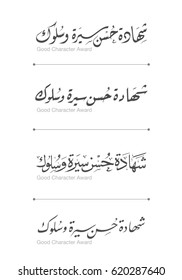 شهادة حسن سيرة وسلوك
Good Character Award
شهادة حسن سيرة وسلوك
Good Character Award
شهادة حسن سيرة وسلوك
Good Character Award
شهادة حسن سيرة وسلوك
Good Character Award
shutterstock.com · 620287640